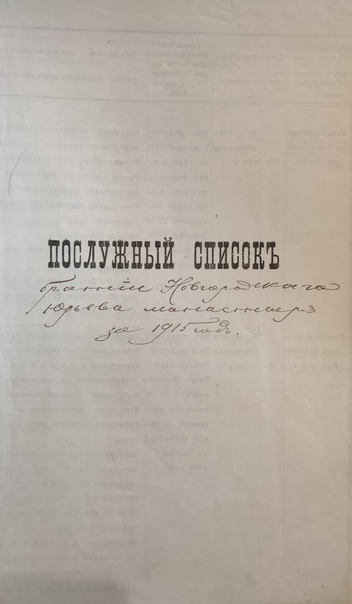 ПОСЛУЖНЫЙ СПИСОКЪ
братiи Новгородскаго
Юрьева монастыря
за 1915 годъ.